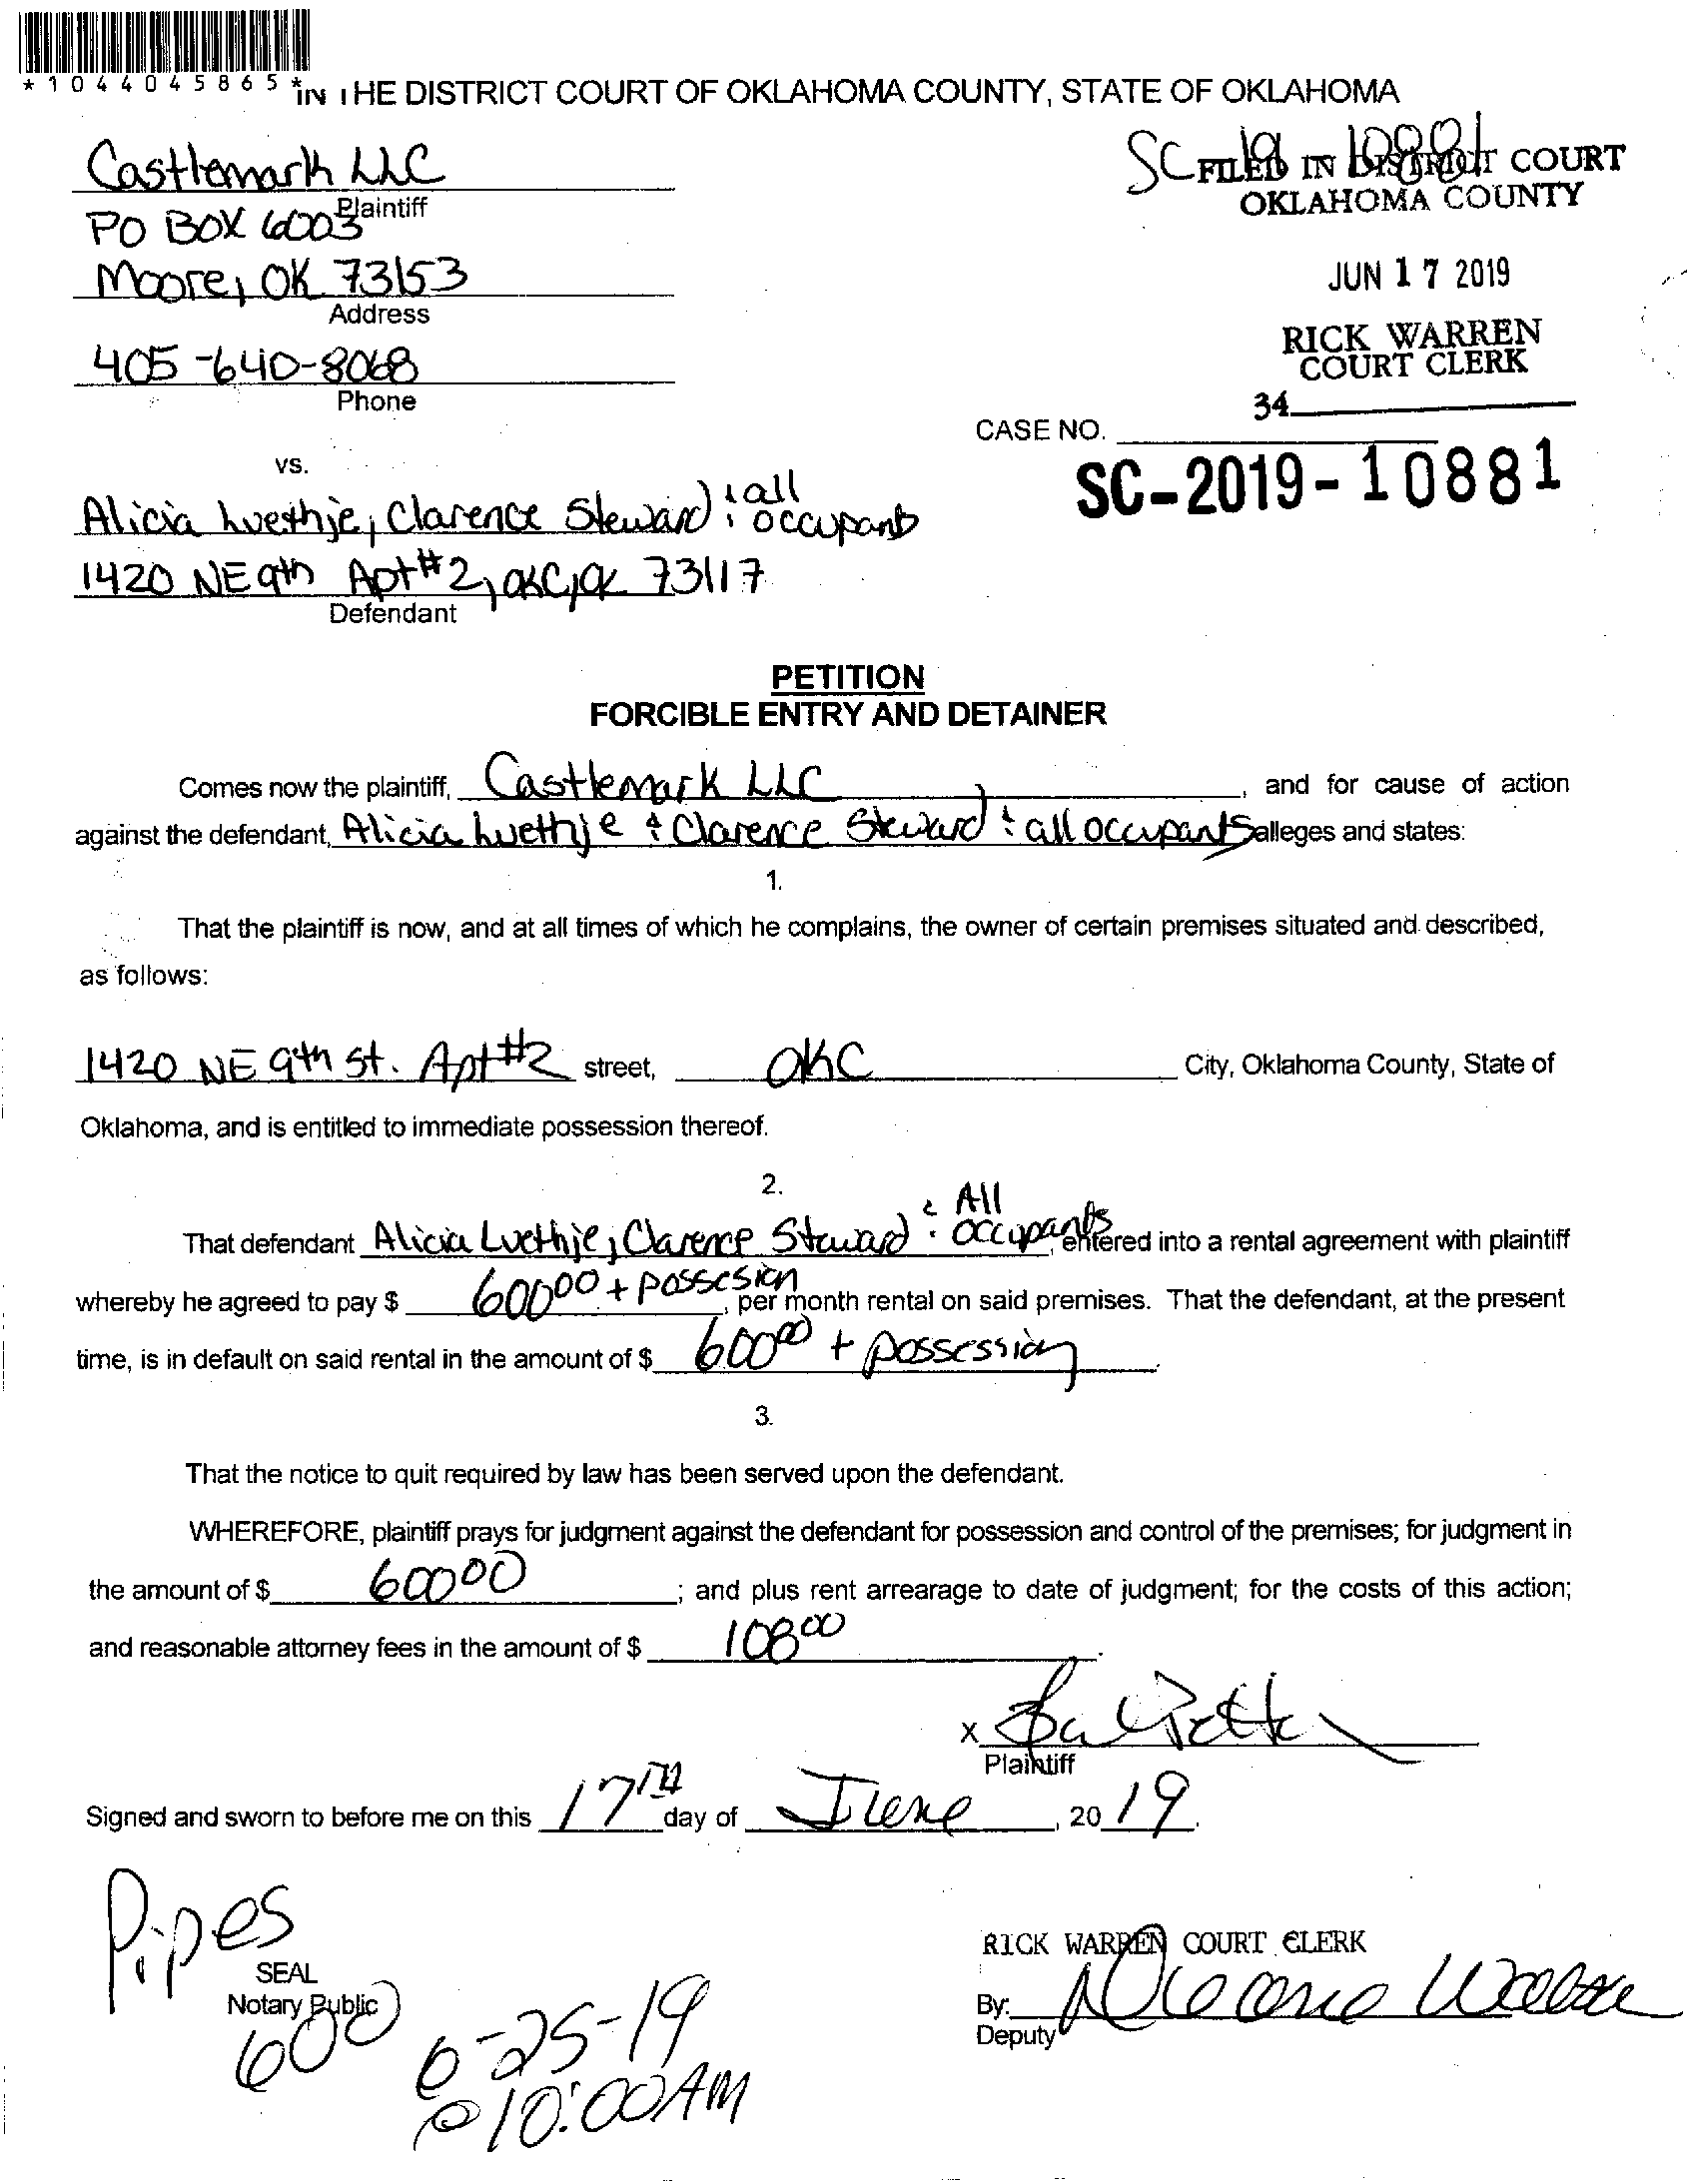 *1044045865*
IN THE DISTRICT COURT OF OKLAHOMA COUNTY, STATE OF OKLAHOMA
Castlemark LLC
Plaintiff
PO BOX 6003
Moore, OK 73153
Address
405-640-8068
Phone
SC-19-10881
FILED IN DISTRICT COURT
OKLAHOMA COUNTY
JUN 17 2019
RICK WARREN
COURT CLERK
34
CASE NO.
SC-2019-10881
vs.
Alicia Luethje, Clarence Steward & all occupants
1420 NE 9th Apt #2, OKC, OK 73117
Defendant
PETITION
FORCIBLE ENTRY AND DETAINER
Comes now the plaintiff, Castlemark LLC, and for cause of action
against the defendant, Alicia Luethje & Clarence Steward & all occupants alleges and states:
1.
That the plaintiff is now, and at all times of which he complains, the owner of certain premises situated and described,
as follows:
1420 NE 9th St. Apt #2 street, OKC City, Oklahoma County, State of
Oklahoma, and is entitled to immediate possession thereof.
2.
That defendant Alicia Luethje, Clarence Steward & All occupants, entered into a rental agreement with plaintiff
whereby he agreed to pay $ 600.00 + possesion, per month rental on said premises. That the defendant, at the present
time, is in default on said rental in the amount of $ 600.00 + possession.
3.
That the notice to quit required by law has been served upon the defendant.
WHEREFORE, plaintiff prays for judgment against the defendant for possession and control of the premises; for judgment in
the amount of $ 600.00; and plus rent arrearage to date of judgment; for the costs of this action;
and reasonable attorney fees in the amount of $ 108.00.
X
Plaintiff
Signed and sworn to before me on this 17TH day of June, 2019.
Pipes
SEAL
Notary Public
600
6-25-19
@ 10:00 AM
RICK WARREN COURT CLERK
By:
Deputy